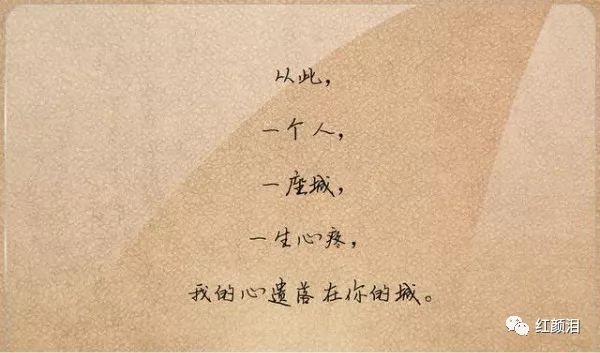 从此，
一个人，
一座城，
一生心疼，
我的心遗落在你的城。
红颜泪